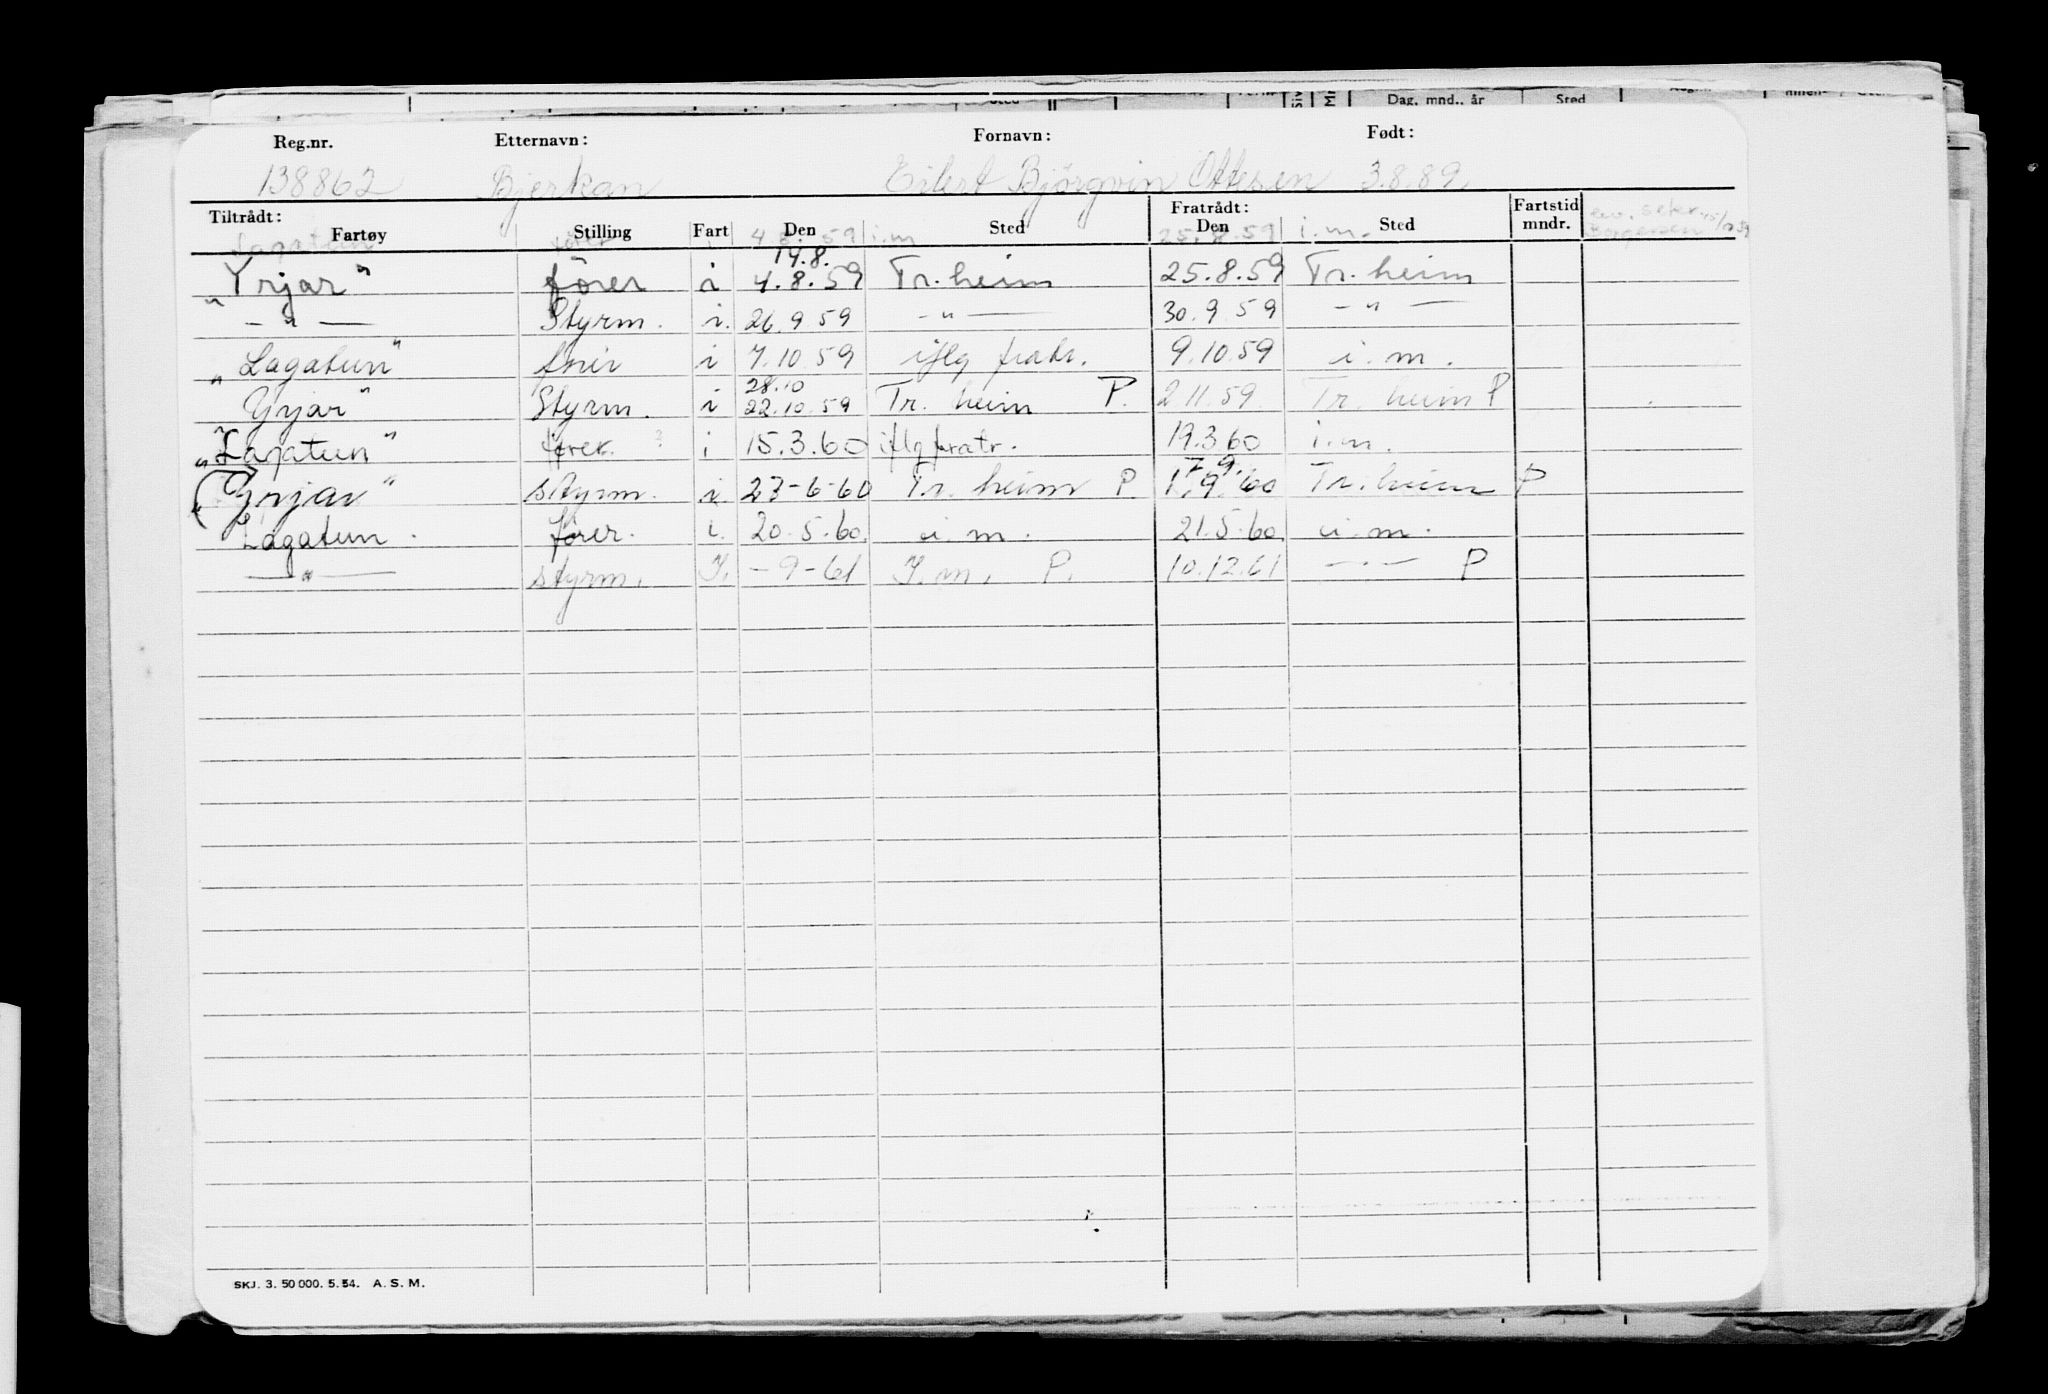 Dag, mnd., år Sted
Reg.nr. Etternavn: Fornavn: Født:
138862 Bjerkan Eilert Björgvin Ottesen 3.8.89.
Tiltrådt: Fratrådt: Fartstid
Fartøy Stilling Fart Den Sted Den Sted mndr.
Lagatun fører i 4.8.59 i.m 25.8.59 i.m.
14.8.
"Yrjar" fører i 4.8.59 Tr.heim 25.8.59 Tr.heim
— " — Styrm. i. 26.9.59 — " — 30.9.59 — " —
"Lagatun" fører i 7.10.59 iflg fratr. 9.10.59 i.m.
28.10
"Yrjar" Styrm. i 22.10.59 Tr. heim P. 2.11.59 Tr. heim P
"Lagatun" fører. ? i 15.3.60 iflg fratr. 19.3.60 i.m.
7.9.
"Yrjar" styrm. i 27-6-60 Tr. heim P. 1.9.60 Tr. heim P
Lagatun. fører. i. 20.5.60. i.m. 21.5.60. i.m.
— " — styrm. I. -9-61 I.m. P. 10.12.61 — " — P
SKJ. 3. 50 000. 5. 54. A. S. M.